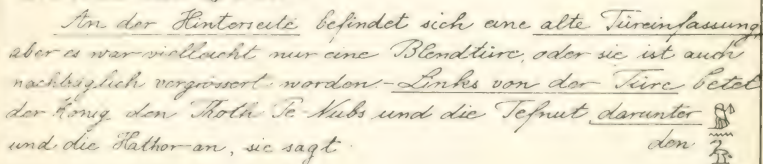 An der Hinterseite befindet sich eine alte Türeinfassung,
aber es war vielleicht nur eine Blendtüre, oder sie ist auch
nachträglich vergrössert worden. - Links von der Türe betet
der König den Thoth Pe-Nubs und die Tefnut darunter
und die Hathor an, sie sagt den